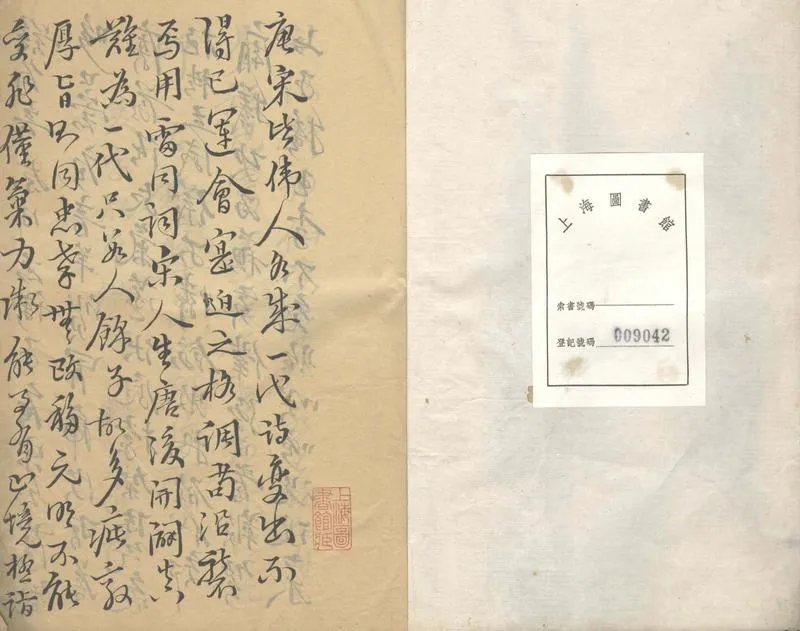 上海圖書館
索書號碼
登記號碼 009042
唐宋皆偉人各成一代詩變出不
得已運會寔迫之格調苟沿襲
焉用雷同詞宋人生唐後開闢真
難為一代只數人餘子故多疵敦
厚旨則同忠孝無改移元明不能
變非僅氣力衰能事有止境極詣
上海圖書館藏